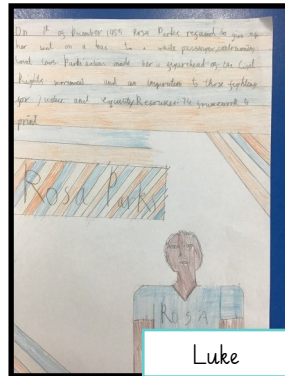 On of December 1955 Rosa Parks refused to give up
her seat on a bus a white passenger,
Parks action made her a of the Civil
Rights movement and an inspiration to those fighting
for justice and equality
print
Rosa Parks
ROSA
Luke